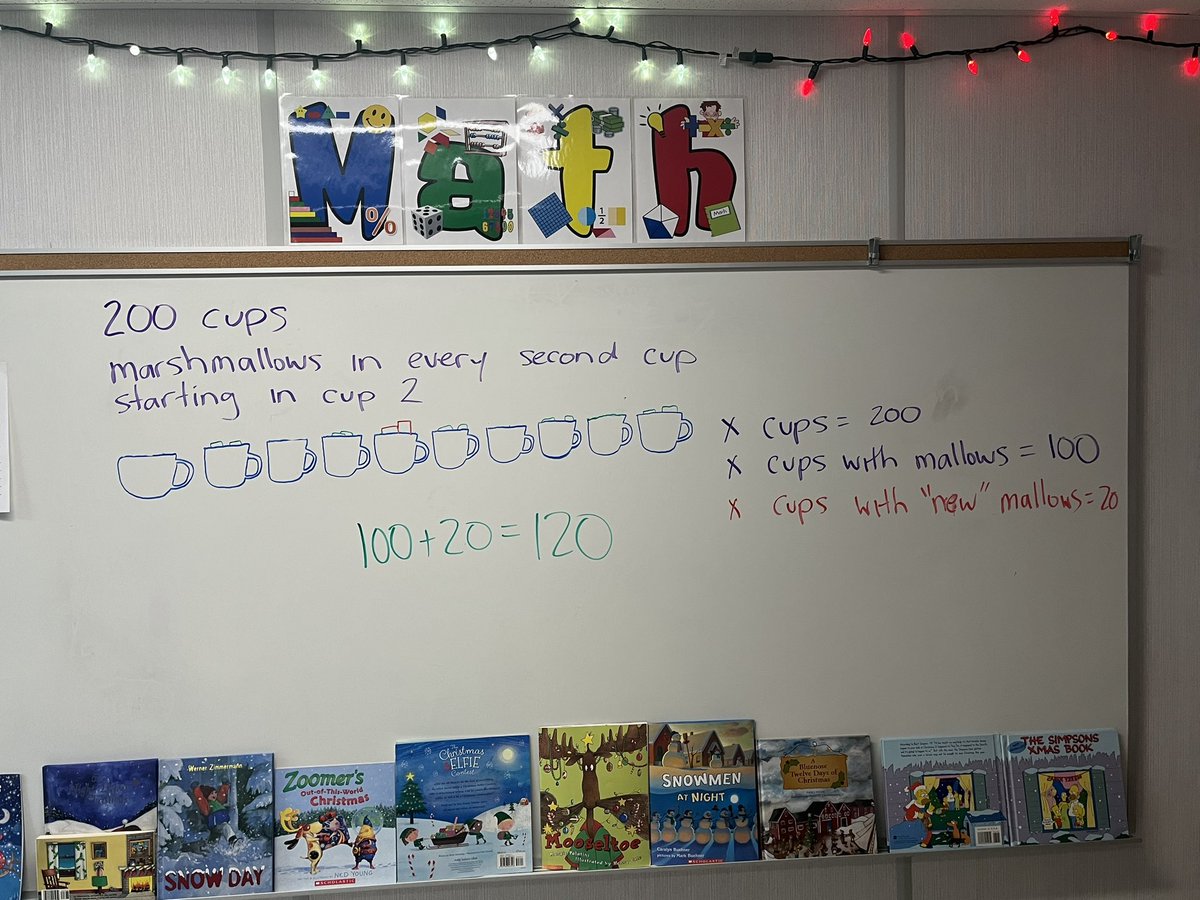 Math
200 cups
marshmallows in every second cup
starting in cup 2
x cups = 200
x cups with mallows = 100
x cups with "new" mallows = 20
100+20=120
Werner Zimmermann
SNOW DAY
ZOOMER'S
OUT-OF-THIS-WORLD
CHRISTMAS
NED YOUNG
SCHOLASTIC
The
Christmas
ELFIE
Contest
Mooseltoe
SNOWMEN
AT NIGHT
Caralyn Buehner
pictures by Mark Buehner
Bluenose
Twelve Days of
Christmas
THE SIMPSONS
XMAS BOOK